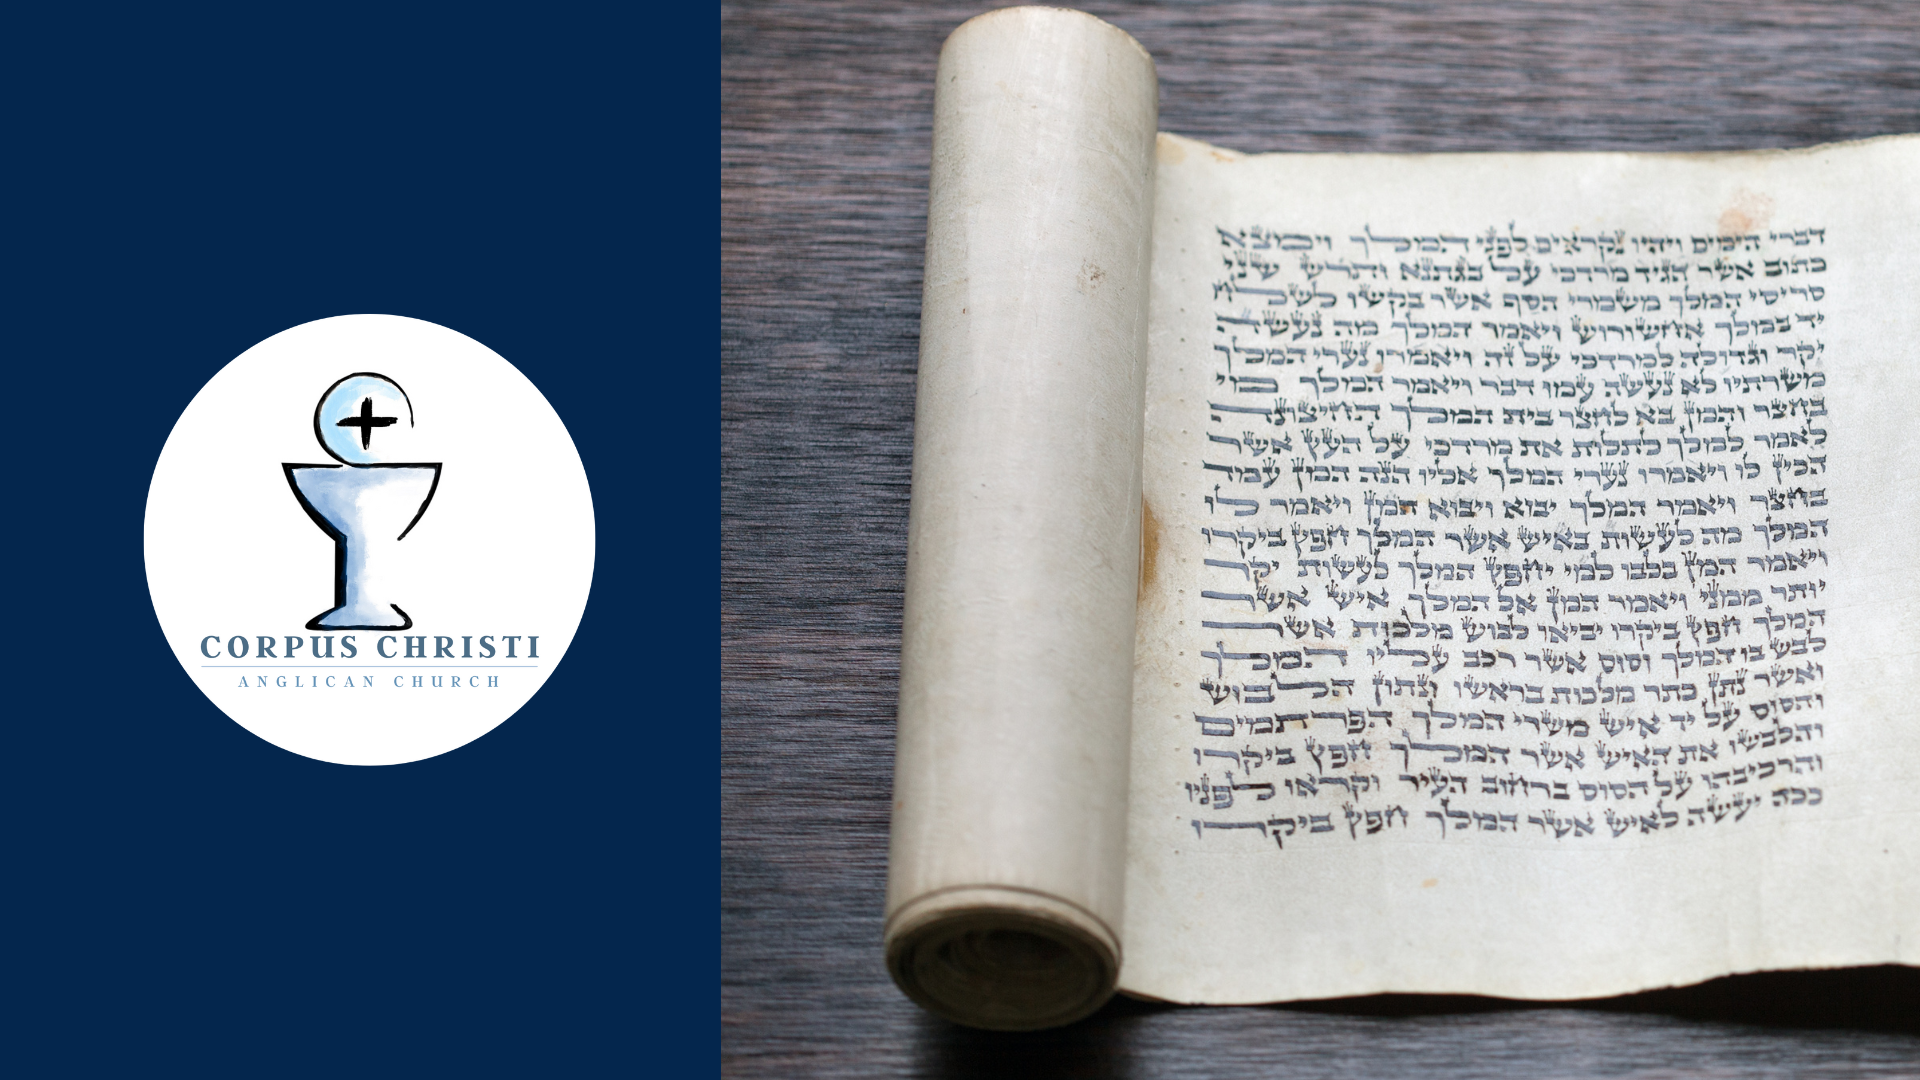 CORPUS CHRISTI
ANGLICAN CHURCH
דברי הימים ויהיו נקראים לפני המלך וימצא
כתוב אשר הגיד מרדכי על בגתנא ותרש שני
סריסי המלך משמרי הסף אשר בקשו לשלח
יד במלך אחשורוש ויאמר המלך מה נעשה
יקר וגדולה למרדכי על זה ויאמרו נערי המלך
משרתיו לא נעשה עמו דבר ויאמר המלך מי
בחצר והמן בא לחצר בית המלך החיצונה
לאמר למלך לתלות את מרדכי על העץ אשר
הכין לו ויאמרו נערי המלך אליו הנה המן עמד
בחצר ויאמר המלך יבוא ויבוא המן ויאמר לו
המלך מה לעשות באיש אשר המלך חפץ ביקרו
ויאמר המן בלבו למי יחפץ המלך לעשות יקר
יותר ממני ויאמר המן אל המלך איש אשר
המלך חפץ ביקרו יביאו לבוש מלכות אשר
לבש בו המלך וסוס אשר רכב עליו המלך
ואשר נתן כתר מלכות בראשו ונתון הלבוש
והסוס על יד איש משרי המלך הפרתמים
והלבשו את האיש אשר המלך חפץ ביקרו
והרכיבהו על הסוס ברחוב העיר וקראו לפניו
ככה יעשה לאיש אשר המלך חפץ ביקרו